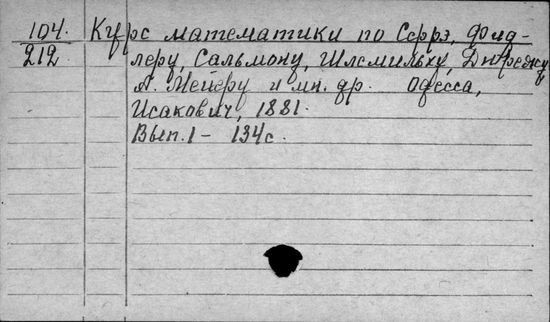 104. Курс математики по Серрэ, Фид-
212 леру, Сальмону, Шлемильху,
А. Мейеру и мн. др. Одесса,
Исакович, 1881.
Вып. 1 – 134 с.